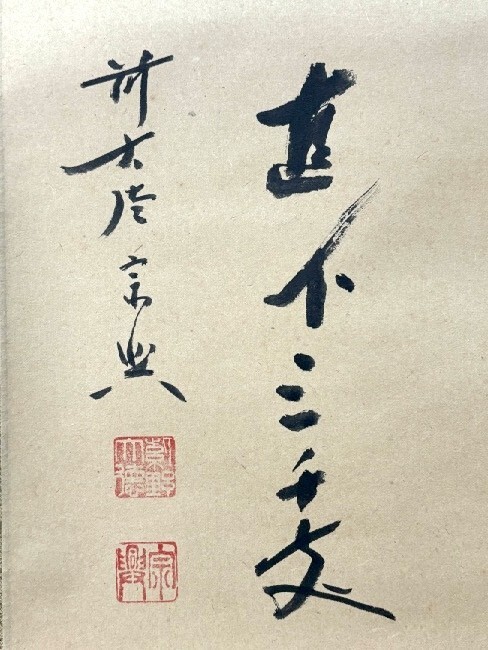 直下三千丈
前大徳宗興
宗興